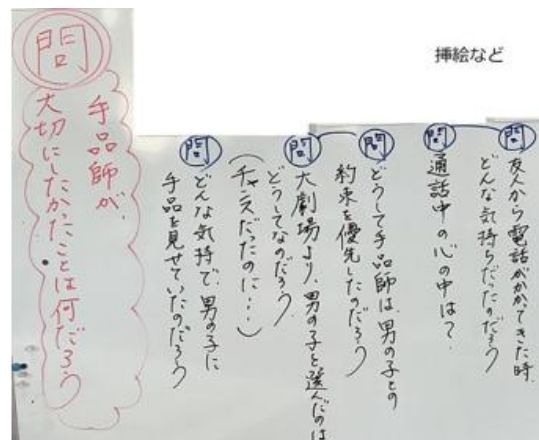 挿絵など
問
友人から電話がかかってきた時、
どんな気持ちだったのだろう
問
通話中の心の中は？
問
どうして手品師は、男の子との
約束を優先したのだろう
問
大劇場より、男の子を選んだのは
どうしてなのだろう
（チャンスだったのに…）
問
どんな気持で、男の子に
手品を見せていたのだろう
問
手品師が、
大切にしたかったことは何だろう